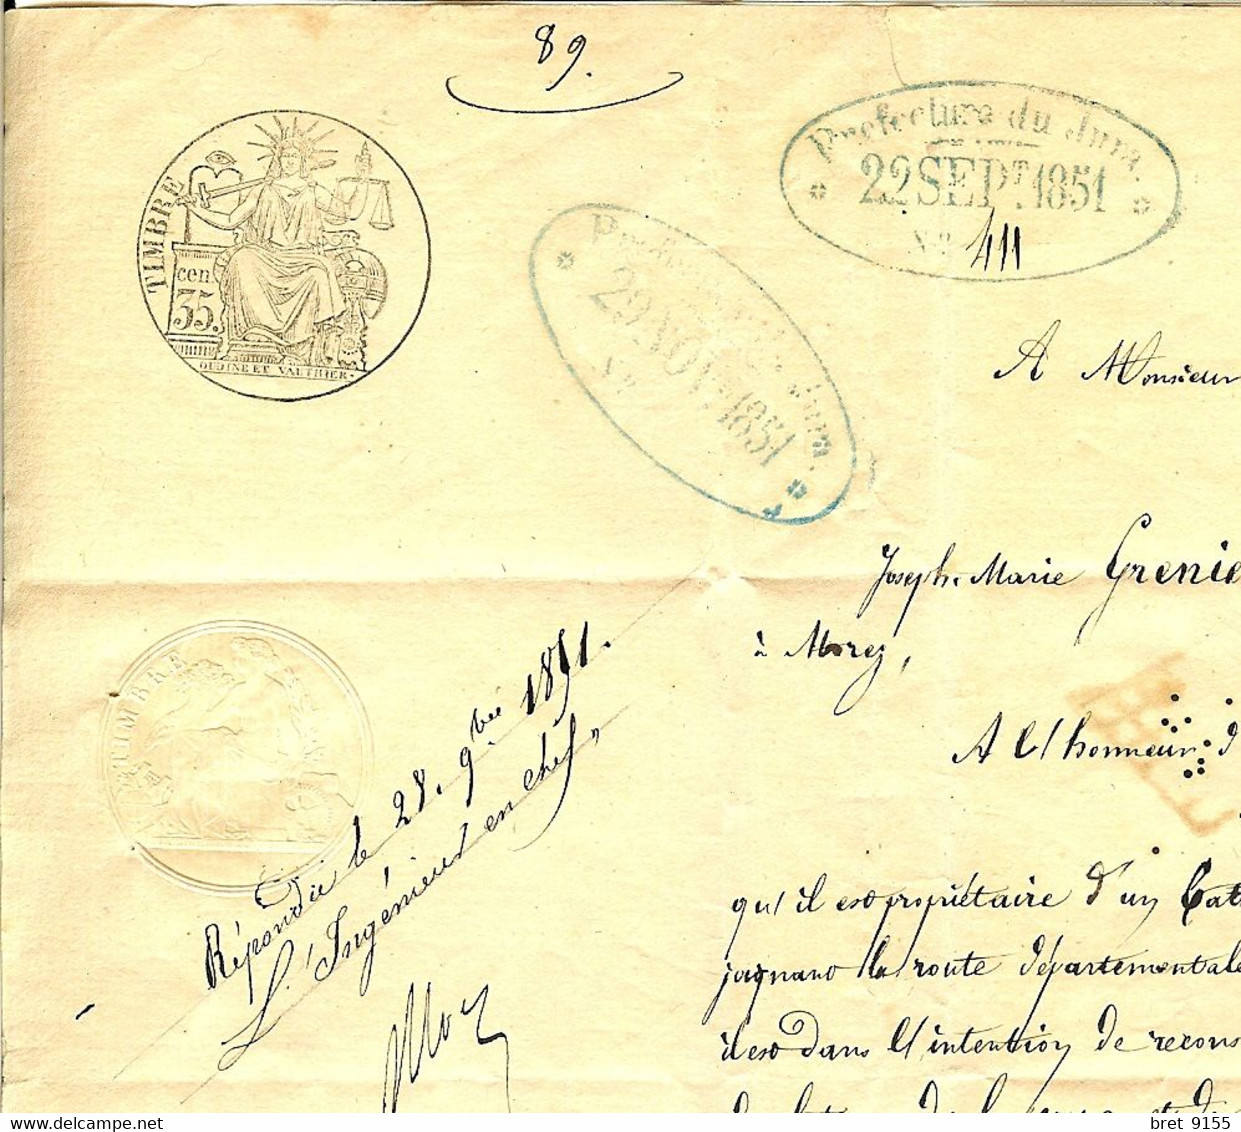 89.
TIMBRE
cen.
35.
OUDINE ET VAUTHIER.
Prefecture du Jura.
22 SEPT. 1851
N° 411
Prefecture du Jura.
29 NOV. 1851
N°
A Monsieur
Joseph Marie Grenie
à Morez,
TIMBRE
A l'honneur d
qu'il est propriétaire d'un Bat
joignant la route départementale
il est dans l'intention de recons
Répondu le 28. 9bre 1851.
L'Ingénieur en chef,
bret 9155